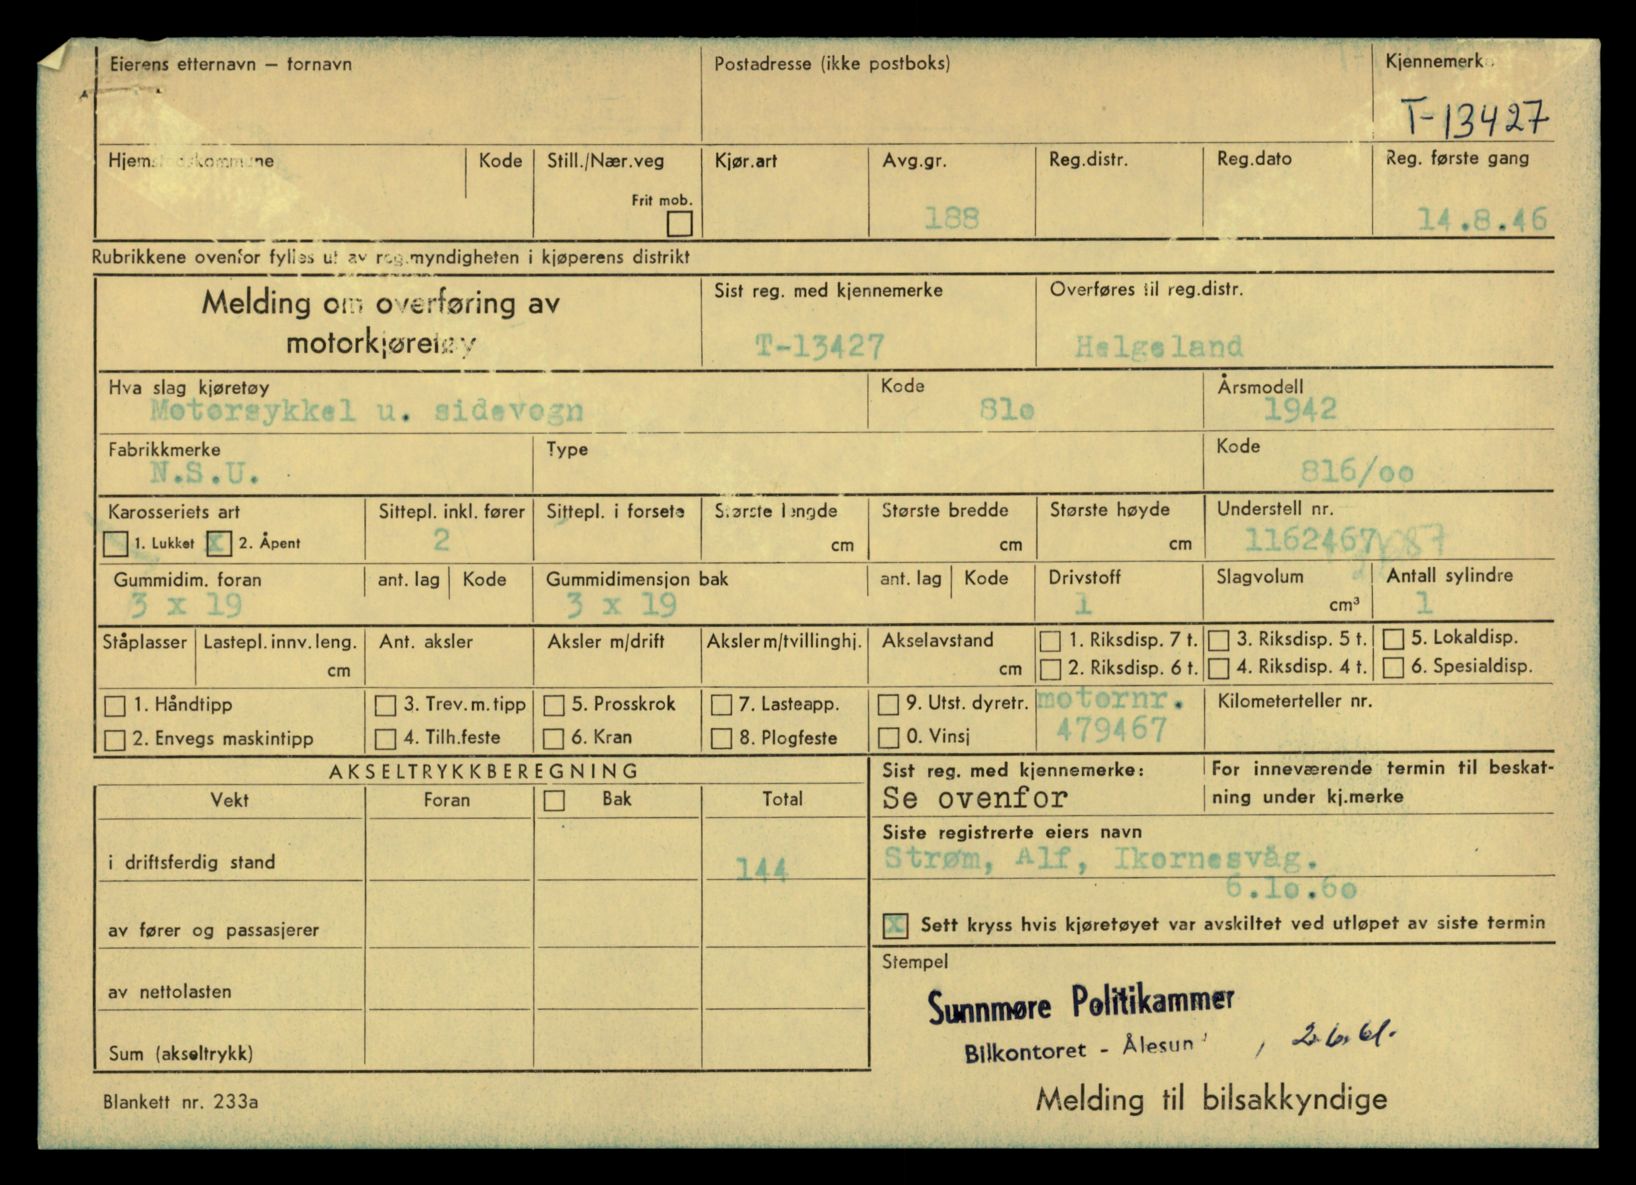 Eierens etternavn — fornavn
Postadresse (ikke postboks)
Kjennemerke
T-13427
Hjemstedskommune
Kode
Still./Nær.veg
Frit mob.
Kjør.art
Avg.gr.
188
Reg.distr.
Reg.dato
Reg. første gang
14.8.46
Rubrikkene ovenfor fylles ut av reg.myndigheten i kjøperens distrikt
Melding om overføring av
motorkjøretøy
Sist reg. med kjennemerke
T-13427
Overføres til reg.distr.
Helgeland
Hva slag kjøretøy
Motorsykkel u. sidevogn
Kode
81o
Årsmodell
1942
Fabrikkmerke
N.S.U.
Type
Kode
816/oo
Karosseriets art
1. Lukket x 2. Åpent
Sittepl. inkl. fører
2
Sittepl. i forsete
Største lengde
cm
Største bredde
cm
Største høyde
cm
Understell nr.
1162467
Gummidim. foran
3 x 19
ant. lag
Kode
Gummidimensjon bak
3 x 19
ant. lag
Kode
Drivstoff
1
Slagvolum
cm³
Antall sylindre
1
Ståplasser
Lastepl. innv. leng.
cm
Ant. aksler
Aksler m/drift
Aksler m/tvillinghj.
Akselavstand
cm
1. Riksdisp. 7 t.
3. Riksdisp. 5 t.
5. Lokaldisp.
2. Riksdisp. 6 t.
4. Riksdisp. 4 t.
6. Spesialdisp.
1. Håndtipp
3. Trev. m. tipp
5. Prosskrok
7. Lasteapp.
9. Utst. dyretr.
2. Envegs maskintipp
4. Tilh.feste
6. Kran
8. Plogfeste
0. Vinsj
motornr.
479467
Kilometerteller nr.
AKSELTRYKKBEREGNING
Vekt
Foran
Bak
Total
i driftsferdig stand
144
av fører og passasjerer
av nettolasten
Sum (akseltrykk)
Sist reg. med kjennemerke:
Se ovenfor
For inneværende termin til beskat-
ning under kj.merke
Siste registrerte eiers navn
Strøm, Alf, Ikornesvåg.
6.1o.6o
x Sett kryss hvis kjøretøyet var avskiltet ved utløpet av siste termin
Stempel
Sunnmøre Politikammer
Bilkontoret - Ålesund, 2.6.61.
Blankett nr. 233a
Melding til bilsakkyndige